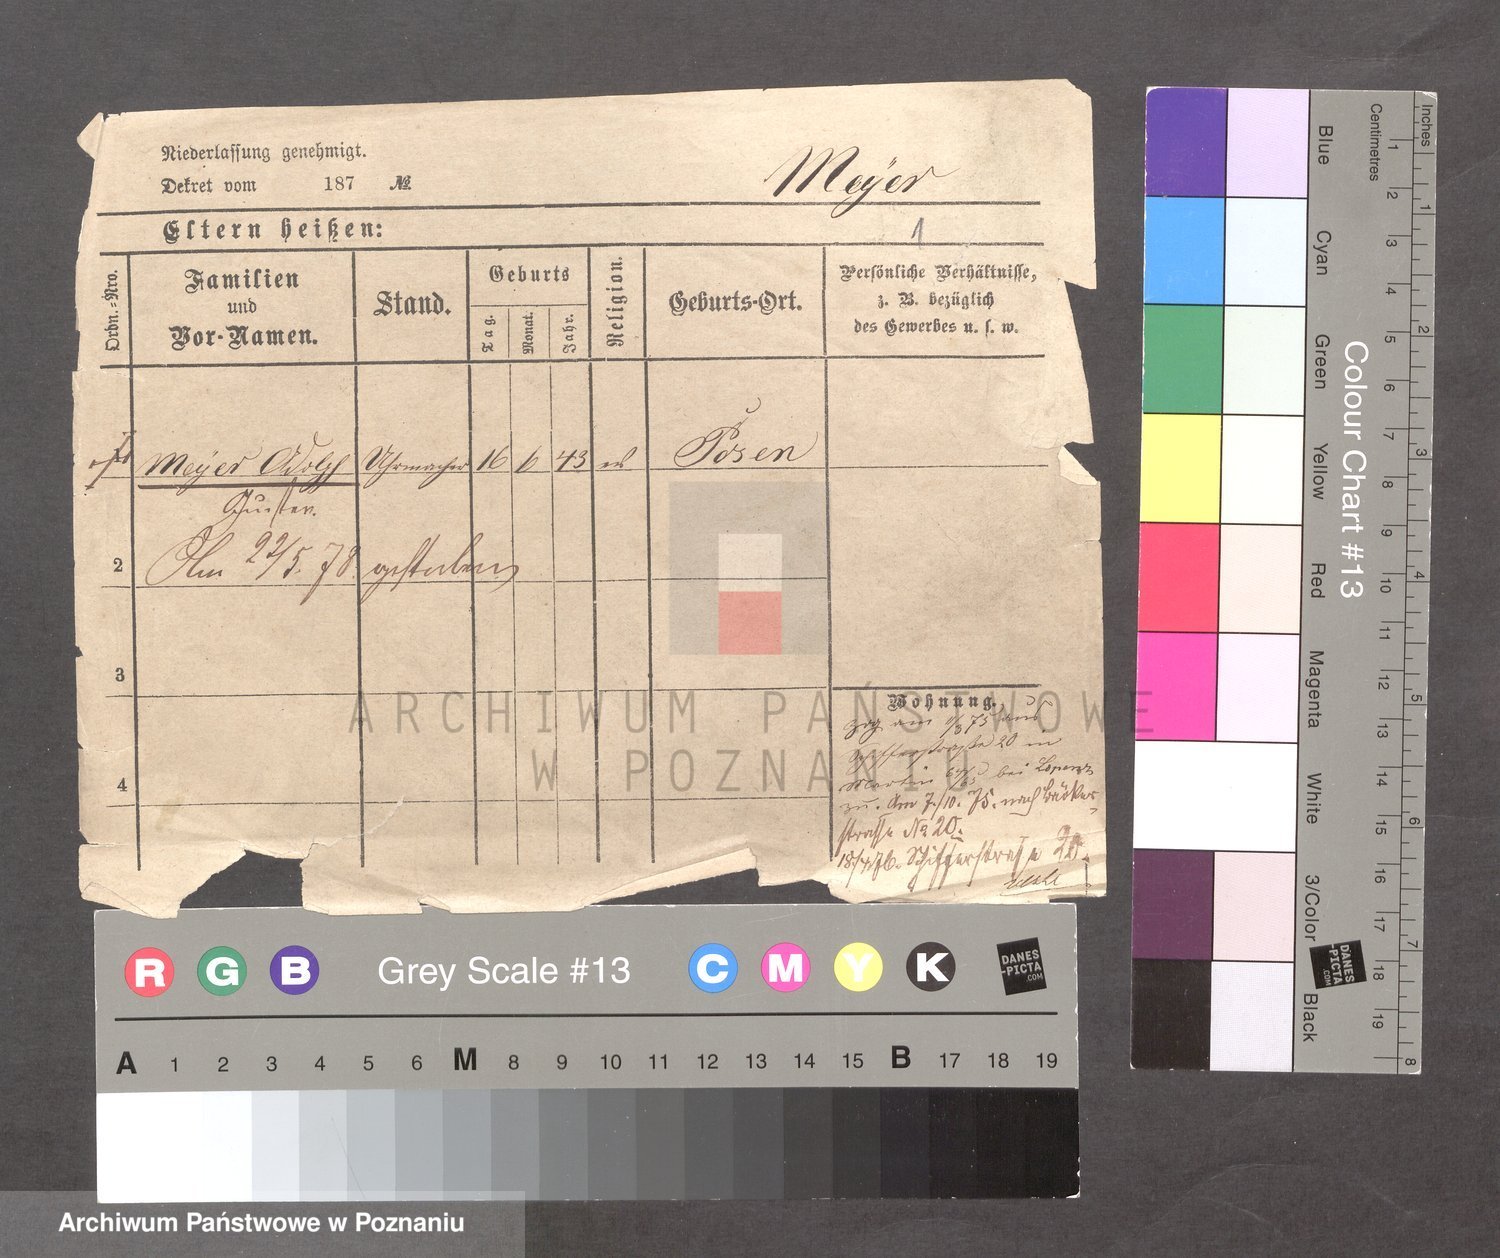 Niederlassung genehmigt.
Dekret vom 187 №
Meyer
Eltern heißen:
1
Ordn.-Nro.
Familien
und
Vor-Namen.
Stand.
Geburts
Tag.
Monat.
Jahr.
Religion.
Geburts-Ort.
Persönliche Verhältnisse,
z. B. bezüglich
des Gewerbes u. s. w.
Meyer Adolph Uhrmacher 16 6 43 Posen
Gustav.
2 Am 22/5. 78 gestorben
3
Wohnung.
zog am 75 aus
20 in
Martin bei Lorenz
zu. Am 7./10. 75. nach Bäcker-
strasse № 20.
18/4.76. Schifferstraße 20.
4
ARCHIWUM PAŃSTWOWE
W POZNANIU
R G B Grey Scale #13 C M Y K
DANES
-PICTA
.COM
A 1 2 3 4 5 6 M 8 9 10 11 12 13 14 15 B 17 18 19
Colour Chart #13
Blue
Cyan
Green
Yellow
Red
Magenta
White
3/Color
Black
Centimetres
1 2 3 4 5 6 7 8 9 10 11 12 13 14 15 16 17 18 19
Inches
1 2 3 4 5 6 7 8
DANES
-PICTA
.COM
Archiwum Państwowe w Poznaniu